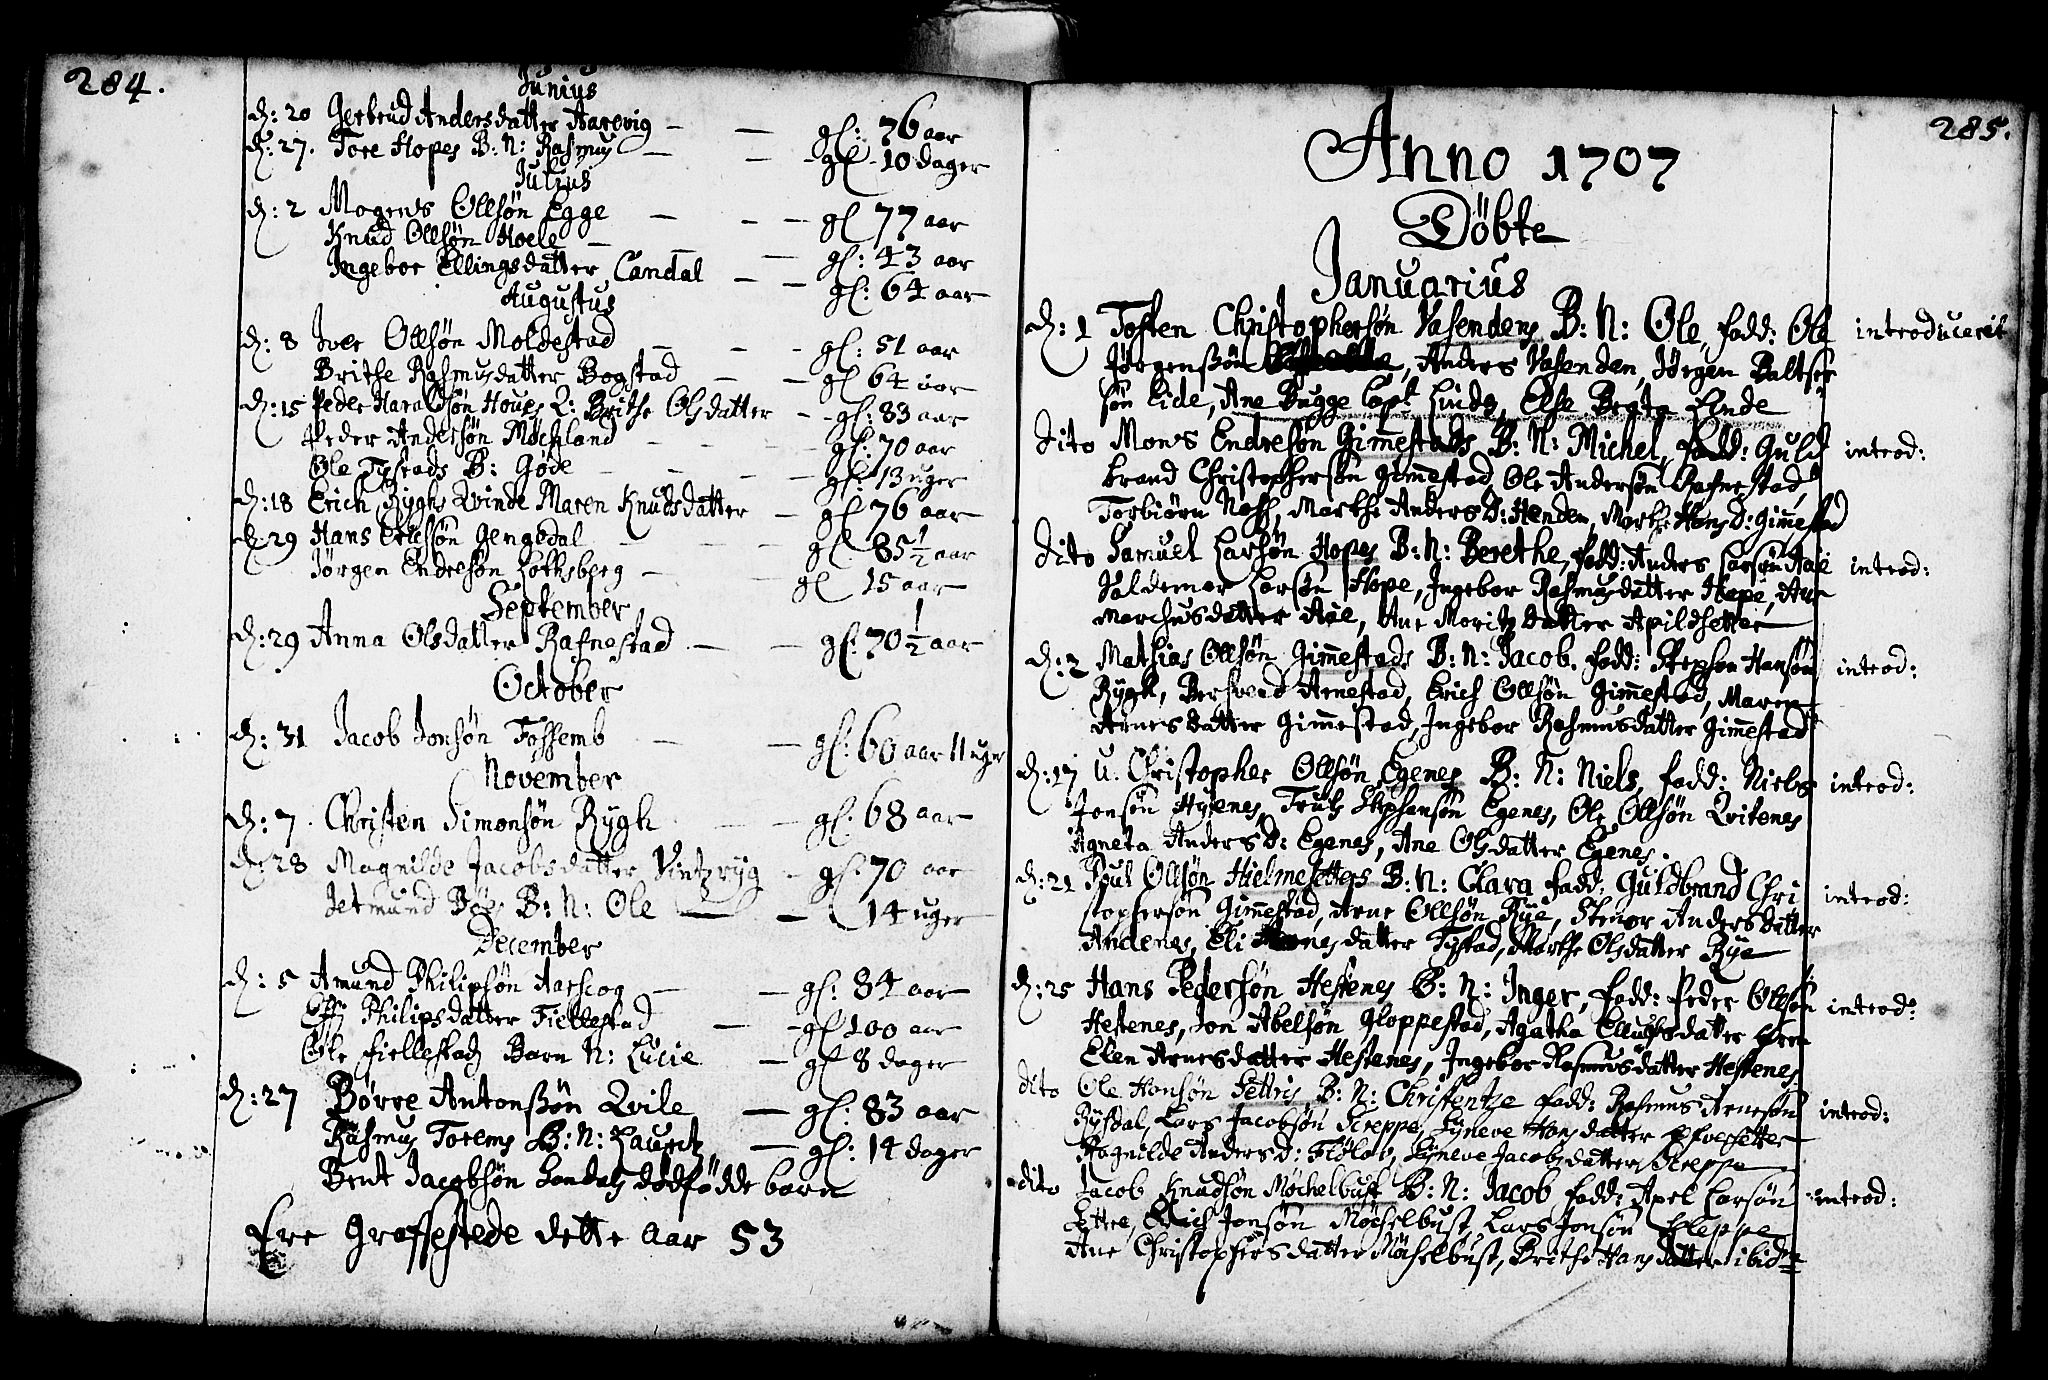 284.
Junius
d: 20 Gertrud Andersdatter Aarevig — — gl: 76 aar
d: 27. Tore Hopes B: N: Rasmus — — gl 10 dager
Julius
d: 2 Mogens Ollsøn Egge — — gl 77 aar
Knud Ollsøn Hoele — — gl: 43 aar
Ingebor Ellingsdatter Candal — — gl: 64 aar
Augustus
d: 8 Iver Ollsøn Moldestad — — gl: 51 aar
Brithe Rasmusdatter Bogstad — — gl 64 aar
d: 15 Peder Haraldsøn Houes Q: Brithe Olsdatter — gl: 83 aar
Peder Andersøn Møchland — — gl: 70 aar
Ole Tystads B: Gøde — — gl: 13 uger
d: 18 Erich Ryghs Qvinde Maren Knudsdatter — gl 76 aar
d: 29 Hans Erichsøn Gengedal — — gl 85 1/2 aar
Jørgen Endresøn Lothsberg — — gl 15 aar
September
d: 29 Anna Olsdatter Rafnestad — — gl: 70 1/2 aar
October
d: 31 Jacob Jonsøn Fossemb — — gl: 60 aar 11 uger
November
d: 7. Christen Simonsøn Rygh — — gl: 68 aar
d: 28 Magnilde Jacobsdatter Vintzryg — gl: 70 aar
Jetmund Bøes B: N: Ole — — 14 uger
December
d: 5 Amund Philipsøn Aarscog — — gl: 84 aar
Philipsdatter Fiellestad — — gl 100 aar
Ole Fiellestads Barn N: Lucie — gl 8 dager
d: 27 Børre Antonssøn Qvile — gl: 83 aar
Rasmus Torems B: N: Lauritz — gl: 14 dager
Bent Jacobsøn Sandals dødfødde barn
Ere Graffestede dette Aar 53
285.
Anno 1707
Döbte
Januarius
d: 1 Tosten Christophersøn Vasendens B: N: Ole, fadd: Ole introducerit
Jørgenssøn , Anders Vasenden, Jørgen Baltser
søn Eide, Ane Bugge Capt Linds, Else Beata Linde
dito Mons Endresøn Gimmestads B: N: Michel, fadd: Guld introd:
brand Christophersøn Gimmestad, Ole Andersøn Rafnestad,
Torbiørn Ness, Marthe Anders D: Henden, Marthe Hans D: Gimmestad
dito Samuel Larsøn Hopes B: N: Berethe, fadd: Anders Larsøn Aae introd:
Valdemar Larsøn Hope, Ingebor Rasmusdatter Hope, Ane
Marchusdatter Aae, Ane Moritzdatter Apildsetter
d: 2 Mathias Ollsøn Gimmestads B: N: Jacob. fadd: Stephen Hansøn introd:
Rygh, Bersvend Arnestad, Erich Ollsøn Gimmestad, Maren
Arnesdatter Gimmestad, Ingebor Rasmusdatter Gimmestad
d: 17 U. Christopher Ollsøn Egenes B: N: Niels, fadd: Niels introd:
Jonsøn Hyenes, Truls Stephensøn Egenes, Ole Ollsøn Qvitenes
Agneta Anders D: Egenes, Ane Olsdatter Egenes.
d: 21 Poul Ollsøn Hielmesetters B: N: Clara fadd: Guldbrand Chri introd:
stophersøn Gimmestad, Arne Ollsøn Rye, Stenor Andersdatter
Andenes, Eli datter Tystad, Marthe Olsdatter Rye
d: 25 Hans Pedersøn Hestenes B: N: Inger, fadd: Peder Ollsøn introd:
Hestenes, Jon Abelsøn Gloppestad, Agatha datter
Elen Arnesdatter Hestenes, Ingebor Rasmusdatter Hestenes
dito Ole Hansøn Settris B: N: Christentze fadd: Rasmus Arnesøn introd:
Rysdal, Lars Jacobsøn Sceppe, Syneve Hansdatter Efversetter
Magnilde Anders D: Fløløb, Syneve Jacobsdatter Sceppe
dito Jacob Knudsøn Møchelbust B: N: Jacob fadd: Axel Larsøn introd:
Ettre, Erich Jonsøn Møchelbust, Lars Jonsøn Eleppe
Ane Christophersdatter Møchelbust, Brithe Hansdatter ibid: